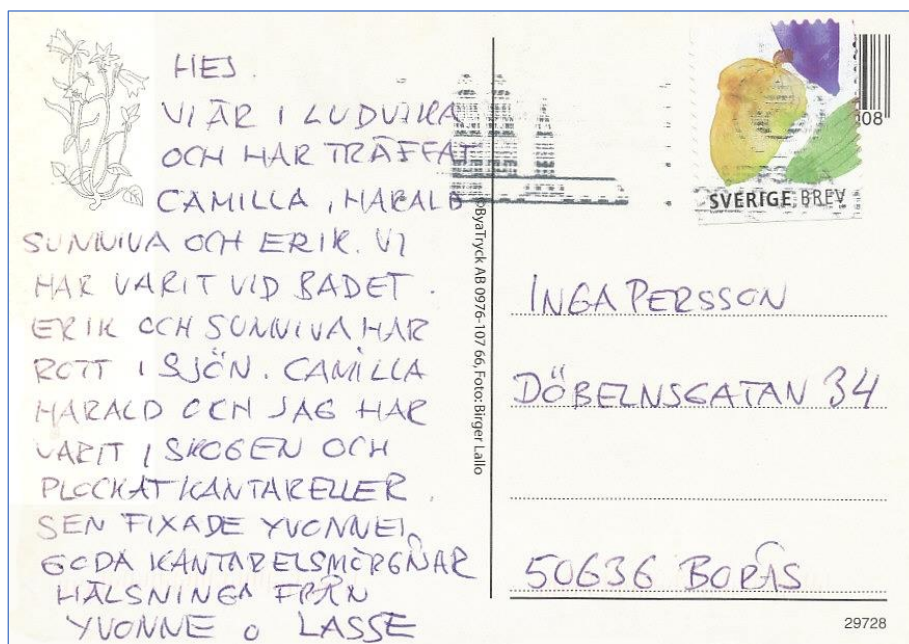 HEJ.
VI ÄR I LUDVIKA
OCH HAR TRÄFFAT
CAMILLA, HARALD
SUNNIVA OCH ERIK. VI
HAR VARIT VID BADET.
ERIK OCH SUNNIVA HAR
ROTT I SJÖN. CAMILLA
HARALD OCH JAG HAR
VARIT I SKOGEN OCH
PLOCKAT KANTARELLER.
SEN FIXADE YVONNE
GODA KANTARELSMÖRGÅAR
HÄLSNINGA FRÅN
YVONNE o LASSE
©ByaTryck AB 0976-107 66, Foto: Birger Lallo
SVERIGE BREV
008
INGA PERSSON
DÖBELNSGATAN 34
50636 BORÅS
29728